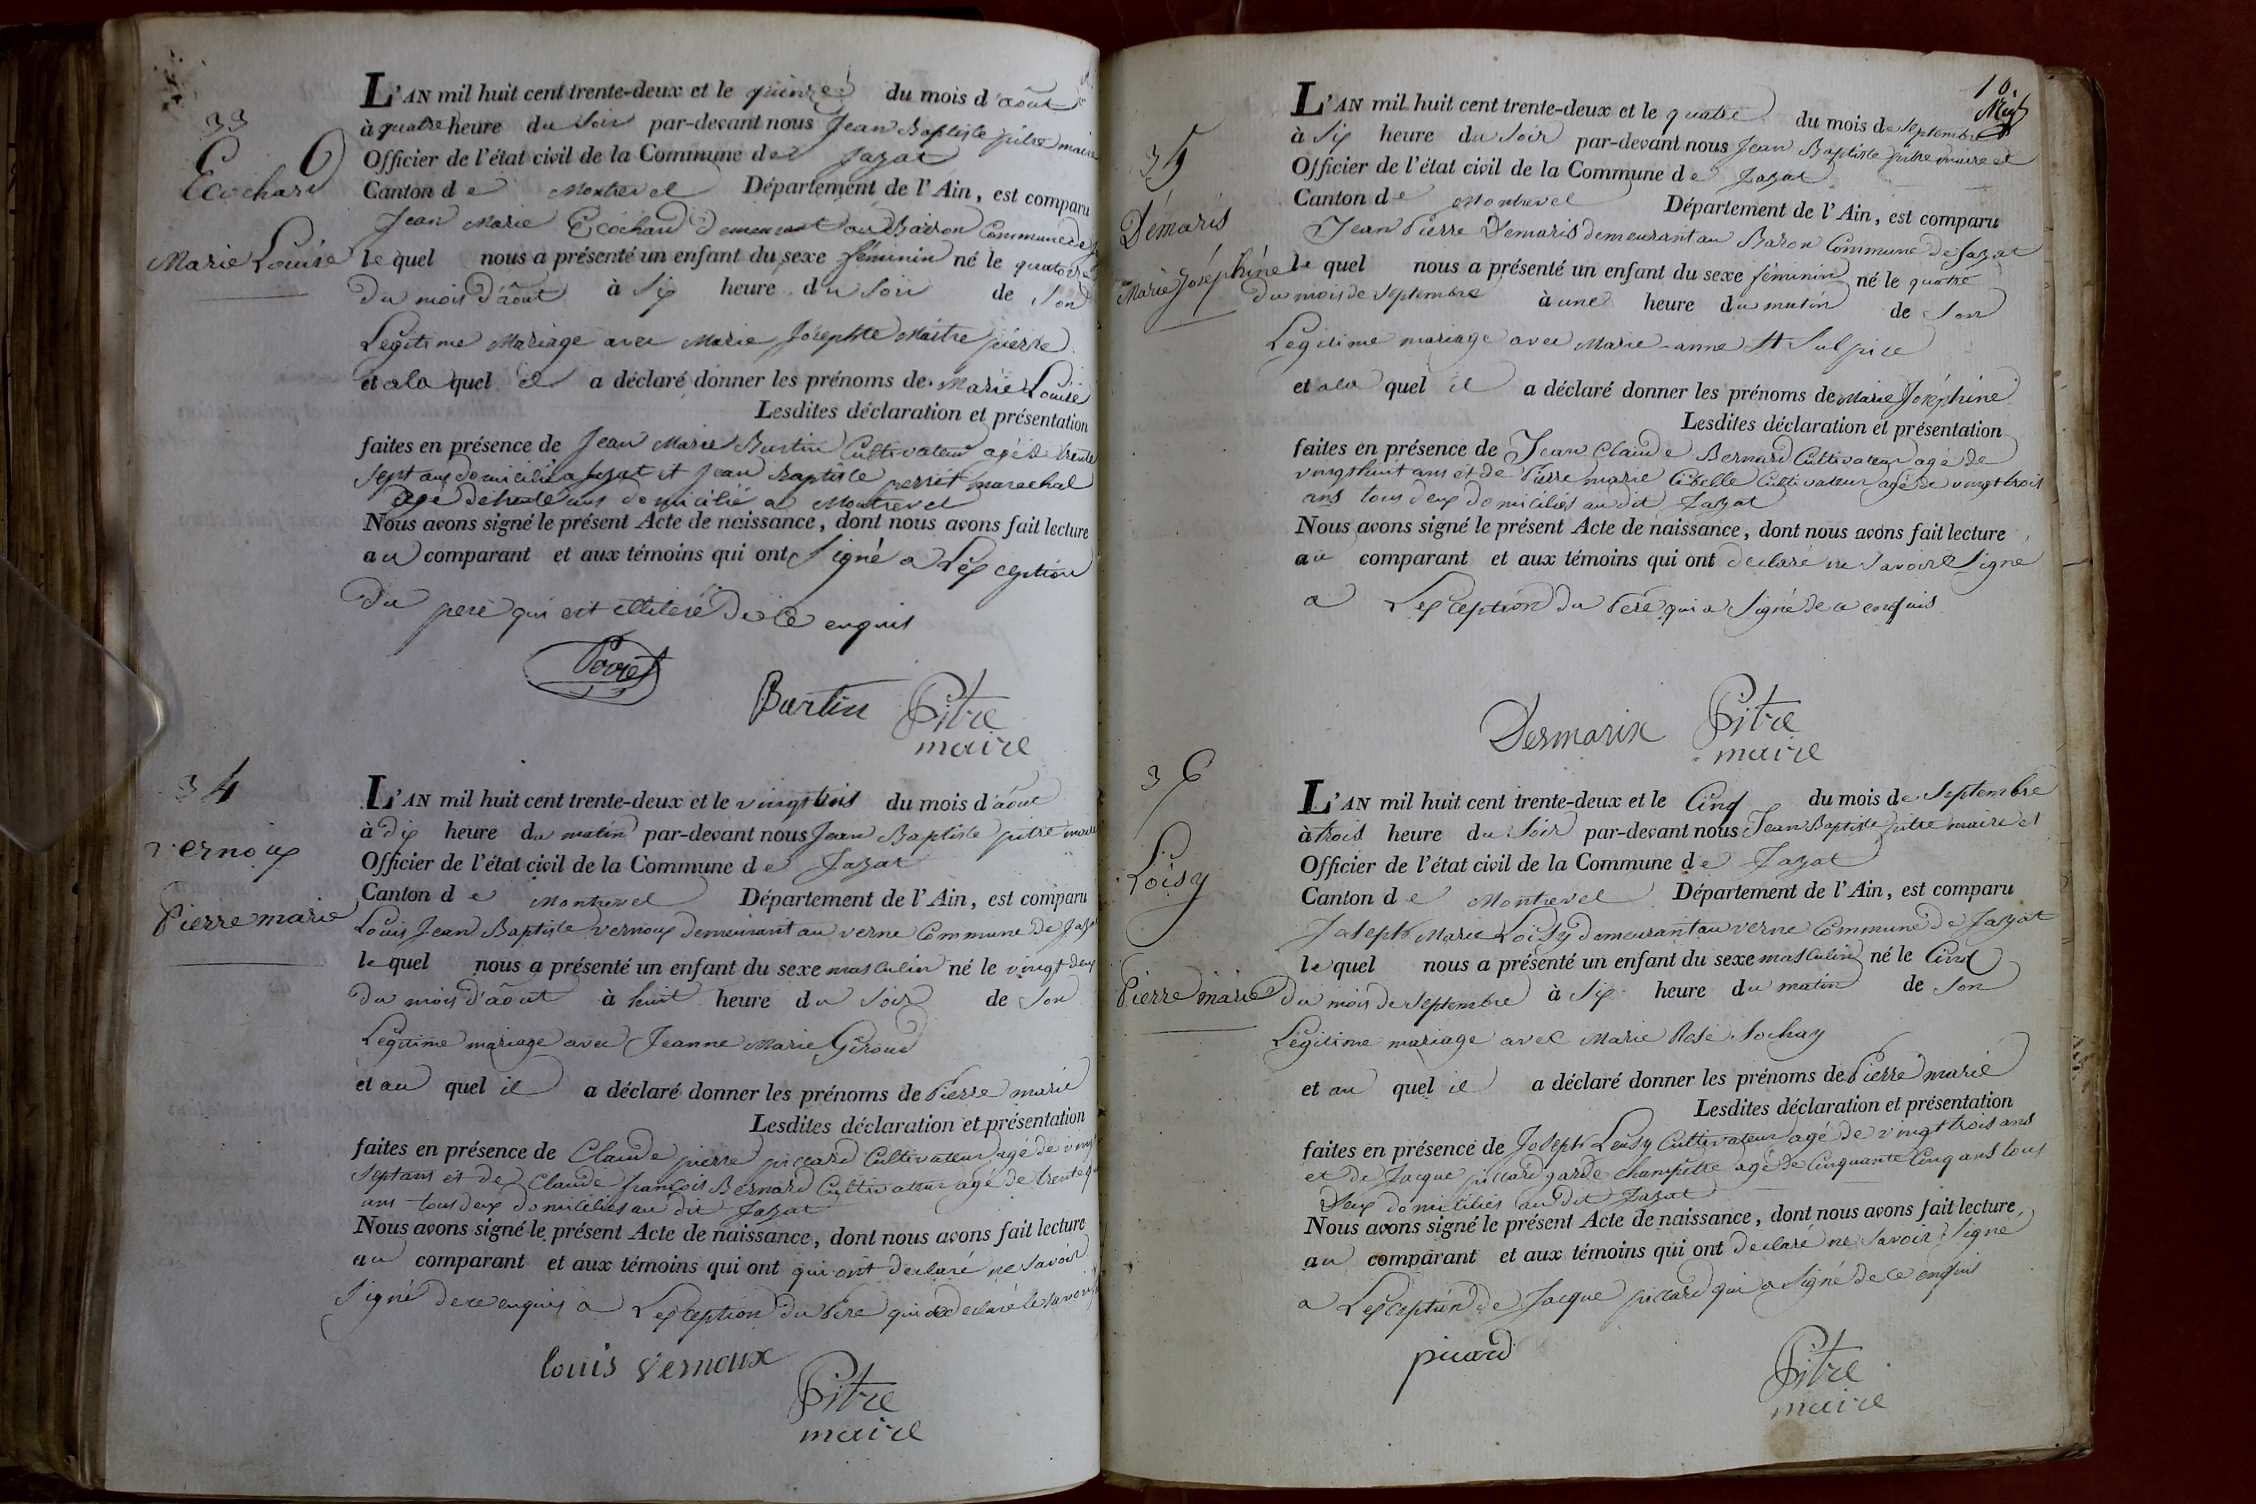 33
Ecochard
Marie Louise
L'AN mil huit cent trente-deux et le quinze du mois d'août
à quatre heure du soir par-devant nous Jean Baptiste pitre maire
Officier de l'état civil de la Commune de Jayat
Canton de Montrevel Département de l'Ain, est comparu
Jean Marie Ecochard demeurant au Baron Commune de
le quel nous a présenté un enfant du sexe féminin né le quatorze
du mois d'août à six heure du soir de son
Légitime Mariage avec Marie Josephte Maitre pierre
et a la quel il a déclaré donner les prénoms de Marie Louise
Lesdites déclaration et présentation
faites en présence de Jean Marie Burtin Cultivateur agé de trente
sept ans domicilié a Jayat et Jean Baptiste perret marechal
agé de trente ans domicilié a Montrevel
Nous avons signé le présent Acte de naissance, dont nous avons fait lecture
au comparant et aux témoins qui ont signé a L'exception
du pere qui est illiteré de ce enquis
Perret
Burtin Pitre
maire
34
vernoux
Pierre marie
L'AN mil huit cent trente-deux et le vingt trois du mois d'août
à dix heure du matin par-devant nous Jean Baptiste pitre maire
Officier de l'état civil de la Commune de Jayat
Canton de Montrevel Département de l'Ain, est comparu
Louis Jean Baptiste vernoux demeurant au verne Commune de Jayat
le quel nous a présenté un enfant du sexe masculin né le vingt deux
du mois d'août à huit heure du soir de son
Légitime mariage avec Jeanne Marie Giroud
et au quel il a déclaré donner les prénoms de Pierre marie
Lesdites déclaration et présentation
faites en présence de Claude pierre piccard Cultivateur agé de vingt
sept ans et de Claude françois Bernard Cultivateur agé de trente
ans tous deux domiciliés au dit Jayat
Nous avons signé le présent Acte de naissance, dont nous avons fait lecture
au comparant et aux témoins qui ont qui ont declaré ne savoir
signé de ce enquis a L'exception du Père qui a declaré le savoir
louis vernoux
Pitre
maire
10.
35
Démaris
Marie Joséphine
L'AN mil huit cent trente-deux et le quatre du mois de septembre
à six heure du soir par-devant nous Jean Baptiste pitre maire et
Officier de l'état civil de la Commune de Jayat
Canton de Montrevel Département de l'Ain, est comparu
Jean Pierre Demaris demeurant au Baron Commune de Jayat
le quel nous a présenté un enfant du sexe féminin né le quatre
du mois de septembre à une heure du matin de son
Légitime mariage avec Marie-anne St Sulpice
et a la quel il a déclaré donner les prénoms de Marie Joséphine
Lesdites déclaration et présentation
faites en présence de Jean Claude Bernard Cultivateur agé de
vingt huit ans et de Pierre marie Cibelle Cultivateur agé de vingt trois
ans tous deux domiciliés au dit Jayat
Nous avons signé le présent Acte de naissance, dont nous avons fait lecture
au comparant et aux témoins qui ont declaré ne savoir signé
a L'exception du Père qui a signé de ce enquis
Desmarix Pitre
maire
36
Loisy
Pierre marie
L'AN mil huit cent trente-deux et le Cinq du mois de septembre
à trois heure du soir par-devant nous Jean Baptiste pitre maire et
Officier de l'état civil de la Commune de Jayat
Canton de Montrevel Département de l'Ain, est comparu
Joseph Marie Loisy demeurant au verne Commune de Jayat
le quel nous a présenté un enfant du sexe masculin né le Cinq
du mois de septembre à six heure du matin de son
Légitime mariage avec Marie Rose Sochay
et au quel il a déclaré donner les prénoms de Pierre marie
Lesdites déclaration et présentation
faites en présence de Joseph Loisy Cultivateur agé de vingt trois ans
et de Jacque piccard garde champêtre agé de Cinquante Cinq ans tous
deux domiciliés au dit Jayat
Nous avons signé le présent Acte de naissance, dont nous avons fait lecture
au comparant et aux témoins qui ont declaré ne savoir signé
a L'exception de Jacque piccard qui a signé de ce enquis
picard
Pitre
maire